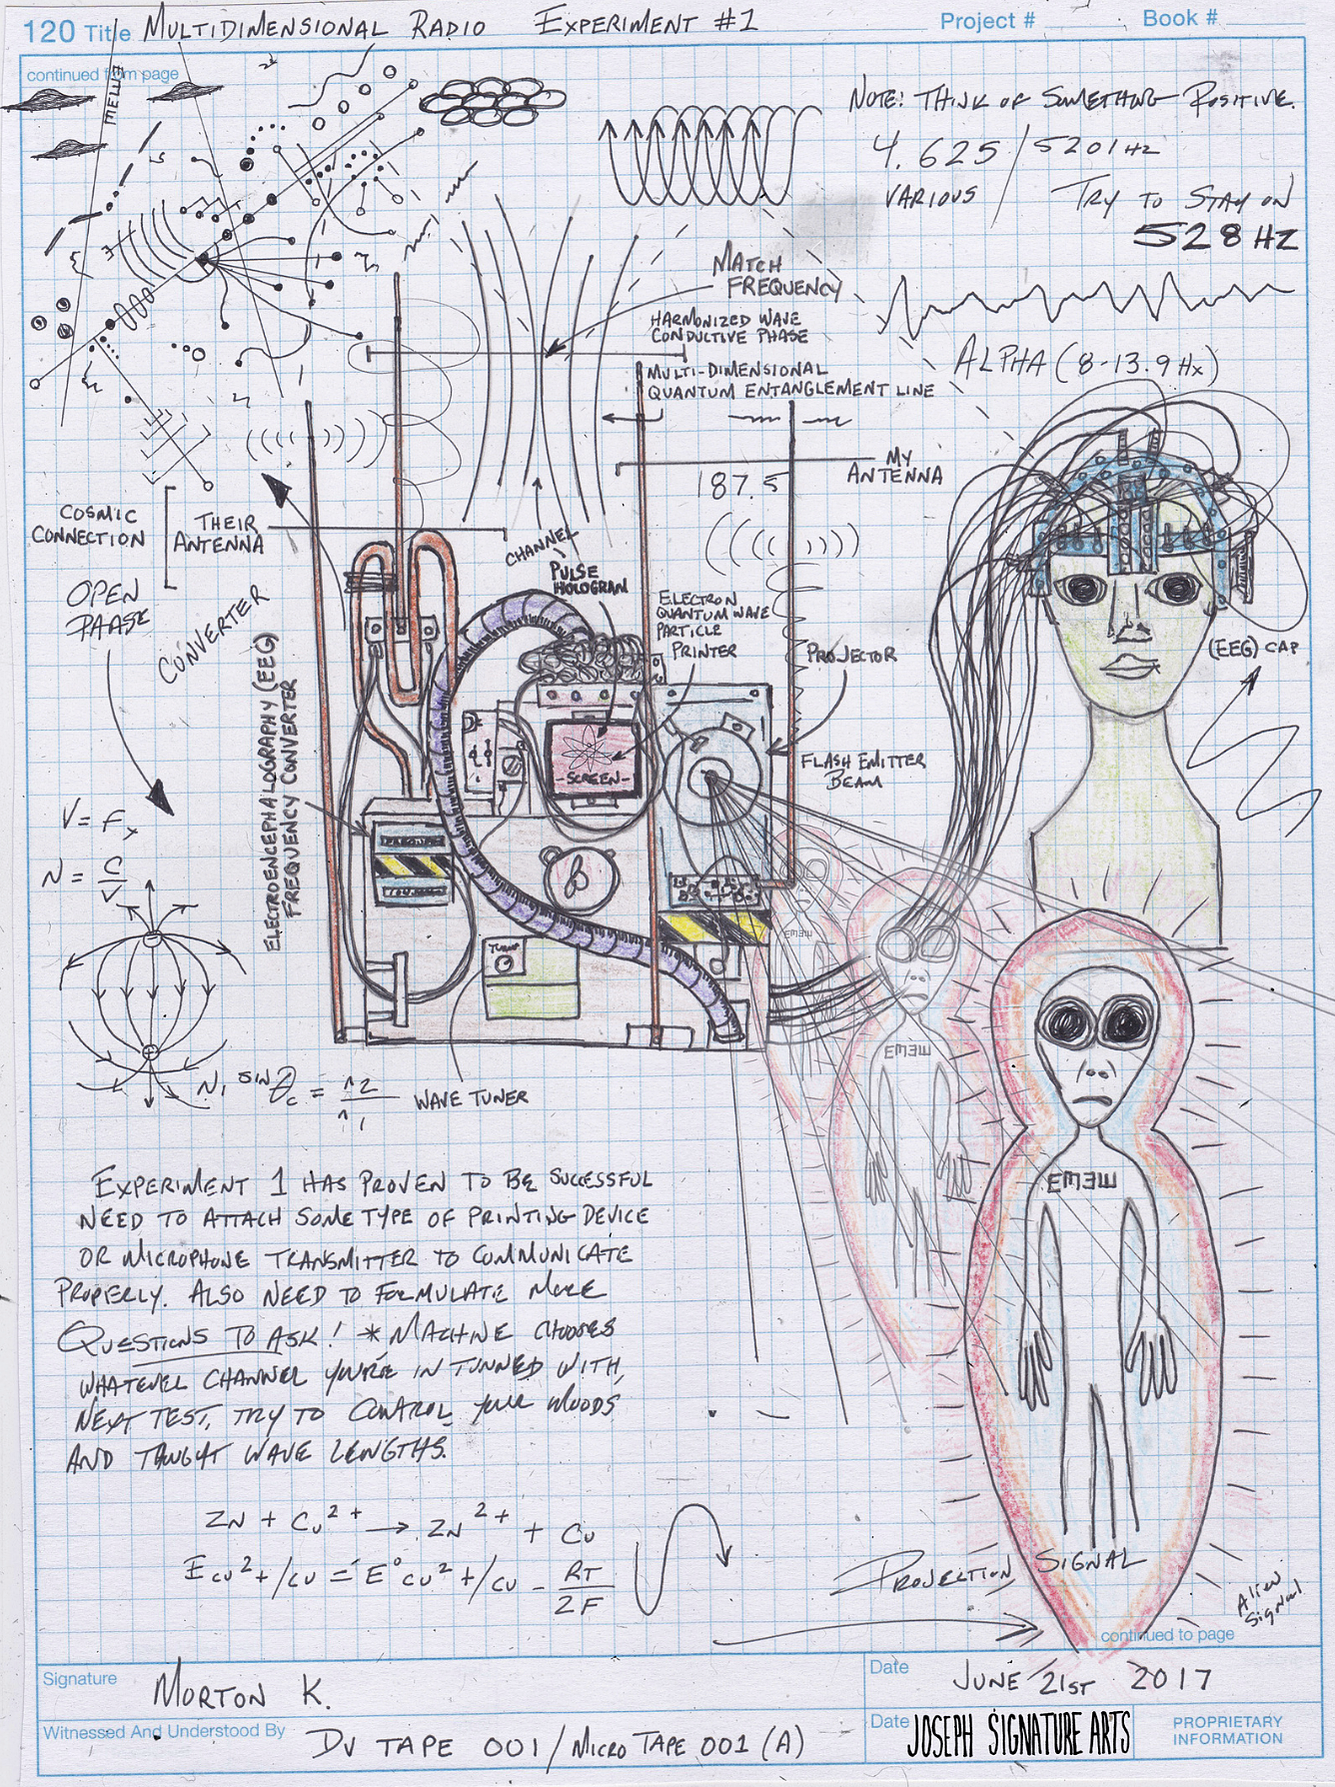 120 Title MULTIDIMENSIONAL RADIO EXPERIMENT #1 Project # Book #
continued from page
NOTE: THINK OF SOMETHING POSITIVE.
4.625 / 5201 HZ
VARIOUS / TRY TO STAY ON
528 HZ
ALPHA (8-13.9 Hx)
MATCH
FREQUENCY
HARMONIZED WAVE
CONDUCTIVE PHASE
MULTI-DIMENSIONAL
QUANTUM ENTANGLEMENT LINE
MY
ANTENNA
187.5
COSMIC
CONNECTION
THEIR
ANTENNA
OPEN
PAASE
CONVERTER
CHANNEL
PULSE
HOLOGRAM
ELECTRON
QUANTUM WAVE
PARTICLE
PRINTER
PROJECTOR
(EEG) CAP
ELECTROENCEPHALOGRAPHY (EEG)
FREQUENCY CONVERTER
-SCREEN-
FLASH EMITTER
BEAM
V = Fx
N = C/V
TUNER
WAVE TUNER
N1 SIN θc = n2/n1
EMEW
EMEW
EMEW
EXPERIMENT 1 HAS PROVEN TO BE SUCCESSFUL
NEED TO ATTACH SOME TYPE OF PRINTING DEVICE
OR MICROPHONE TRANSMITTER TO COMMUNICATE
PROPERLY. ALSO NEED TO FORMULATE MORE
QUESTIONS TO ASK! *MACHINE CHOOSES
WHATEVER CHANNEL YOU'RE IN TUNNED WITH,
NEXT TEST, TRY TO CONTROL YOUR MOODS
AND THOUGHT WAVE LENGTHS.
ZN + Cu2+ → ZN2+ + Cu
E Cu2+/Cu = E° Cu2+/Cu - RT/2F
PROJECTION SIGNAL
Alien
Signal
continued to page
Signature MORTON K. Date JUNE 21ST 2017
Witnessed And Understood By DV TAPE 001/MICRO TAPE 001 (A) Date JOSEPH SIGNATURE ARTS PROPRIETARY
INFORMATION